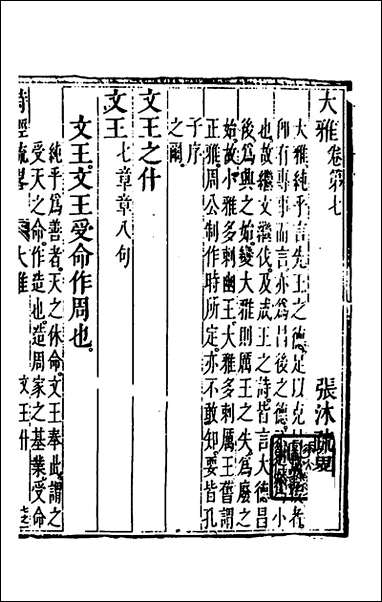 大雅卷第七 張沐疏畧
大雅純乎言先王之德足以克
即有專事而言亦為昌後之德 小
也故繼文濳伐及武王之詩皆言大德昌
後為興之始變大雅則厲王之失為廢之
始故小雅多刺幽王大雅多刺厲王舊謂
正雅周公制作時所定亦不敢知要皆孔
子序
之爾
文王之什
文王七章章八句
文王文王受命作周也
純乎為善者天之休命文王奉此謂之
受天之命作造也造周家之基業受命
詩經疏畧 大雅 文王什